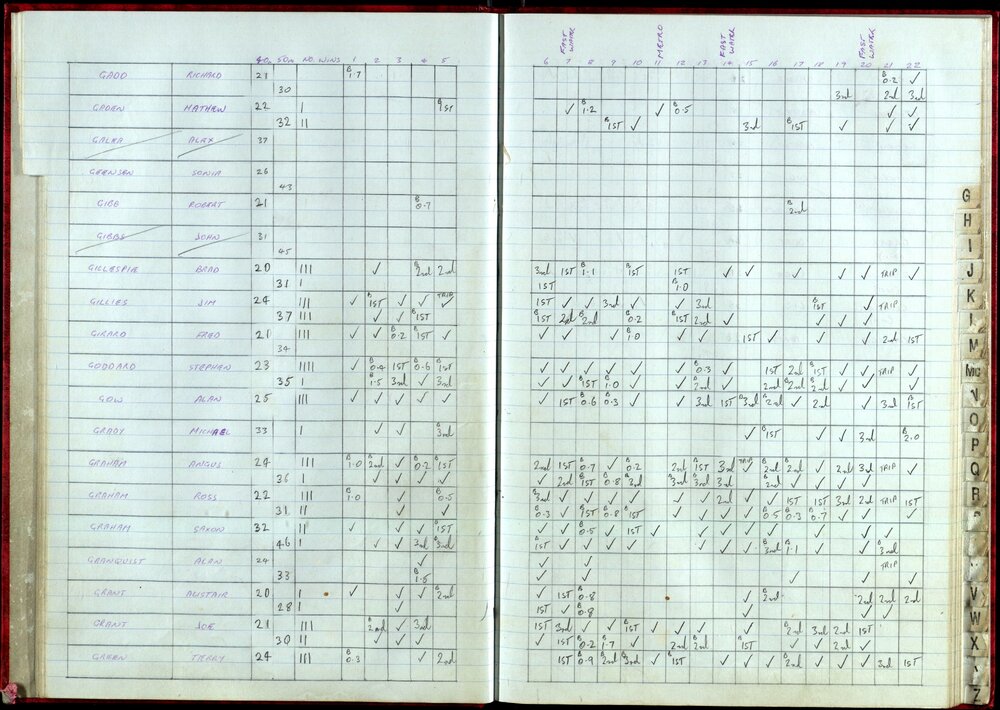 FAST WATER METRO FAST WATER FAST WATER
40m 50m NO. WINS 1 2 3 4 5 6 7 8 9 10 11 12 13 14 15 16 17 18 19 20 21 22
GADD RICHARD 21 B 1.7 B 0.2 ✓
30 3rd 2nd 3rd
GROEN MATHEW 22 I B 1ST ✓ B 1.2 ✓ B 0.5 ✓ ✓
32 II B 1ST ✓ 3rd B 1ST ✓ ✓ ✓
GALEA ALEX 37
GEENSEN SONIA 26
43
GIBB ROBERT 21 B 0.7 B 2nd
GIBBS JOHN 31
45
GILLESPIE BRAD 20 III ✓ B 2nd 2nd 3rd 1ST B 1.1 B 1ST 1ST ✓ ✓ ✓ ✓ ✓ TRIP ✓
31 I 1ST B 1.0
GILLIES JIM 24 III ✓ B 1ST ✓ ✓ TRIP ✓ 1ST ✓ ✓ 3rd ✓ ✓ 3rd B 1ST ✓ TRIP
37 III ✓ ✓ B 1ST B 1ST 2nd B 2nd B 0.2 B 1ST 2nd ✓ ✓ ✓ ✓
GIRARD FRED 21 III ✓ ✓ B 0.2 B 1ST ✓ ✓ ✓ ✓ B 1.0 ✓ ✓ 1ST ✓ ✓ ✓ 2nd 1ST
34
GODDARD STEPHEN 23 IIII ✓ B 0.4 1ST B 0.6 B 1ST ✓ ✓ ✓ ✓ ✓ ✓ B 0.3 ✓ 1ST 2nd B 1ST ✓ ✓ TRIP ✓
35 I B 1.5 3rd ✓ 3rd ✓ ✓ B 1ST B 1.0 ✓ ✓ B 2nd ✓ 2nd B 2nd B 2nd ✓ ✓ ✓
GOW ALAN 25 III ✓ ✓ ✓ ✓ ✓ ✓ 1ST B 0.6 B 0.3 ✓ ✓ 3rd 1ST B 3rd B 2nd ✓ 2nd ✓ 3rd B 1ST
GRADY MICHAEL 33 I ✓ ✓ B 3rd ✓ B 1ST ✓ ✓ 3rd B 2.0
GRAHAM ANGUS 24 III B 1.0 B 2nd ✓ B 0.2 B 1ST 2nd 1ST B 0.7 ✓ B 0.2 2nd B 1ST 3rd TRIP ✓ B 2nd B 2nd ✓ 2nd 3rd TRIP ✓
36 I ✓ ✓ ✓ ✓ ✓ 2nd B 1ST B 0.8 B 3rd B 3rd B 3rd 3rd B 2nd ✓ ✓ ✓ ✓
GRAHAM ROSS 22 III B 1.0 ✓ B 0.5 B 3rd ✓ ✓ ✓ ✓ ✓ ✓ 2nd ✓ ✓ 1ST 1ST 3rd 2nd TRIP 1ST
31 II ✓ ✓ B 0.3 ✓ B 1ST B 0.8 B 1ST ✓ ✓ ✓ ✓ B 0.5 B 0.3 B 0.7 ✓ ✓ ✓
GRAHAM SAXON 32 II ✓ ✓ ✓ B 1ST ✓ ✓ B 0.5 ✓ ✓ ✓ ✓ ✓ ✓ ✓ ✓ ✓ ✓
46 I ✓ ✓ 3rd B 3rd B 1ST ✓ ✓ ✓ ✓ ✓ ✓ ✓ B 3rd B 1.1 ✓ ✓ ✓ B 3rd
GRANQUIST ALAN 24 ✓ ✓ ✓ TRIP
33 B 1.5 ✓ ✓ ✓ ✓ ✓
GRANT ALISTAIR 20 I ✓ ✓ ✓ B 2nd ✓ 1ST B 0.8 ✓ B 2nd 2nd 2nd 2nd
28 I ✓ 1ST ✓ B 0.8 ✓ ✓ ✓
GRANT JOE 21 III B 2nd ✓ 3rd 1ST 3rd ✓ ✓ B 1ST ✓ ✓ ✓ ✓ ✓ B 2nd 3rd 2nd 1ST
30 II ✓ ✓ ✓ ✓ 1ST B 0.2 B 1.7 ✓ B 2nd B 2nd B 1ST ✓ ✓ 2nd ✓
GREEN TERRY 24 III B 0.3 ✓ 2nd 1ST B 0.9 B 2nd B 3rd ✓ B 1ST ✓ ✓ ✓ B 2nd ✓ ✓ ✓ 3rd 1ST
G
H
I
J
K
M
Mc
N
O
P
Q
R
V
W
X
Z